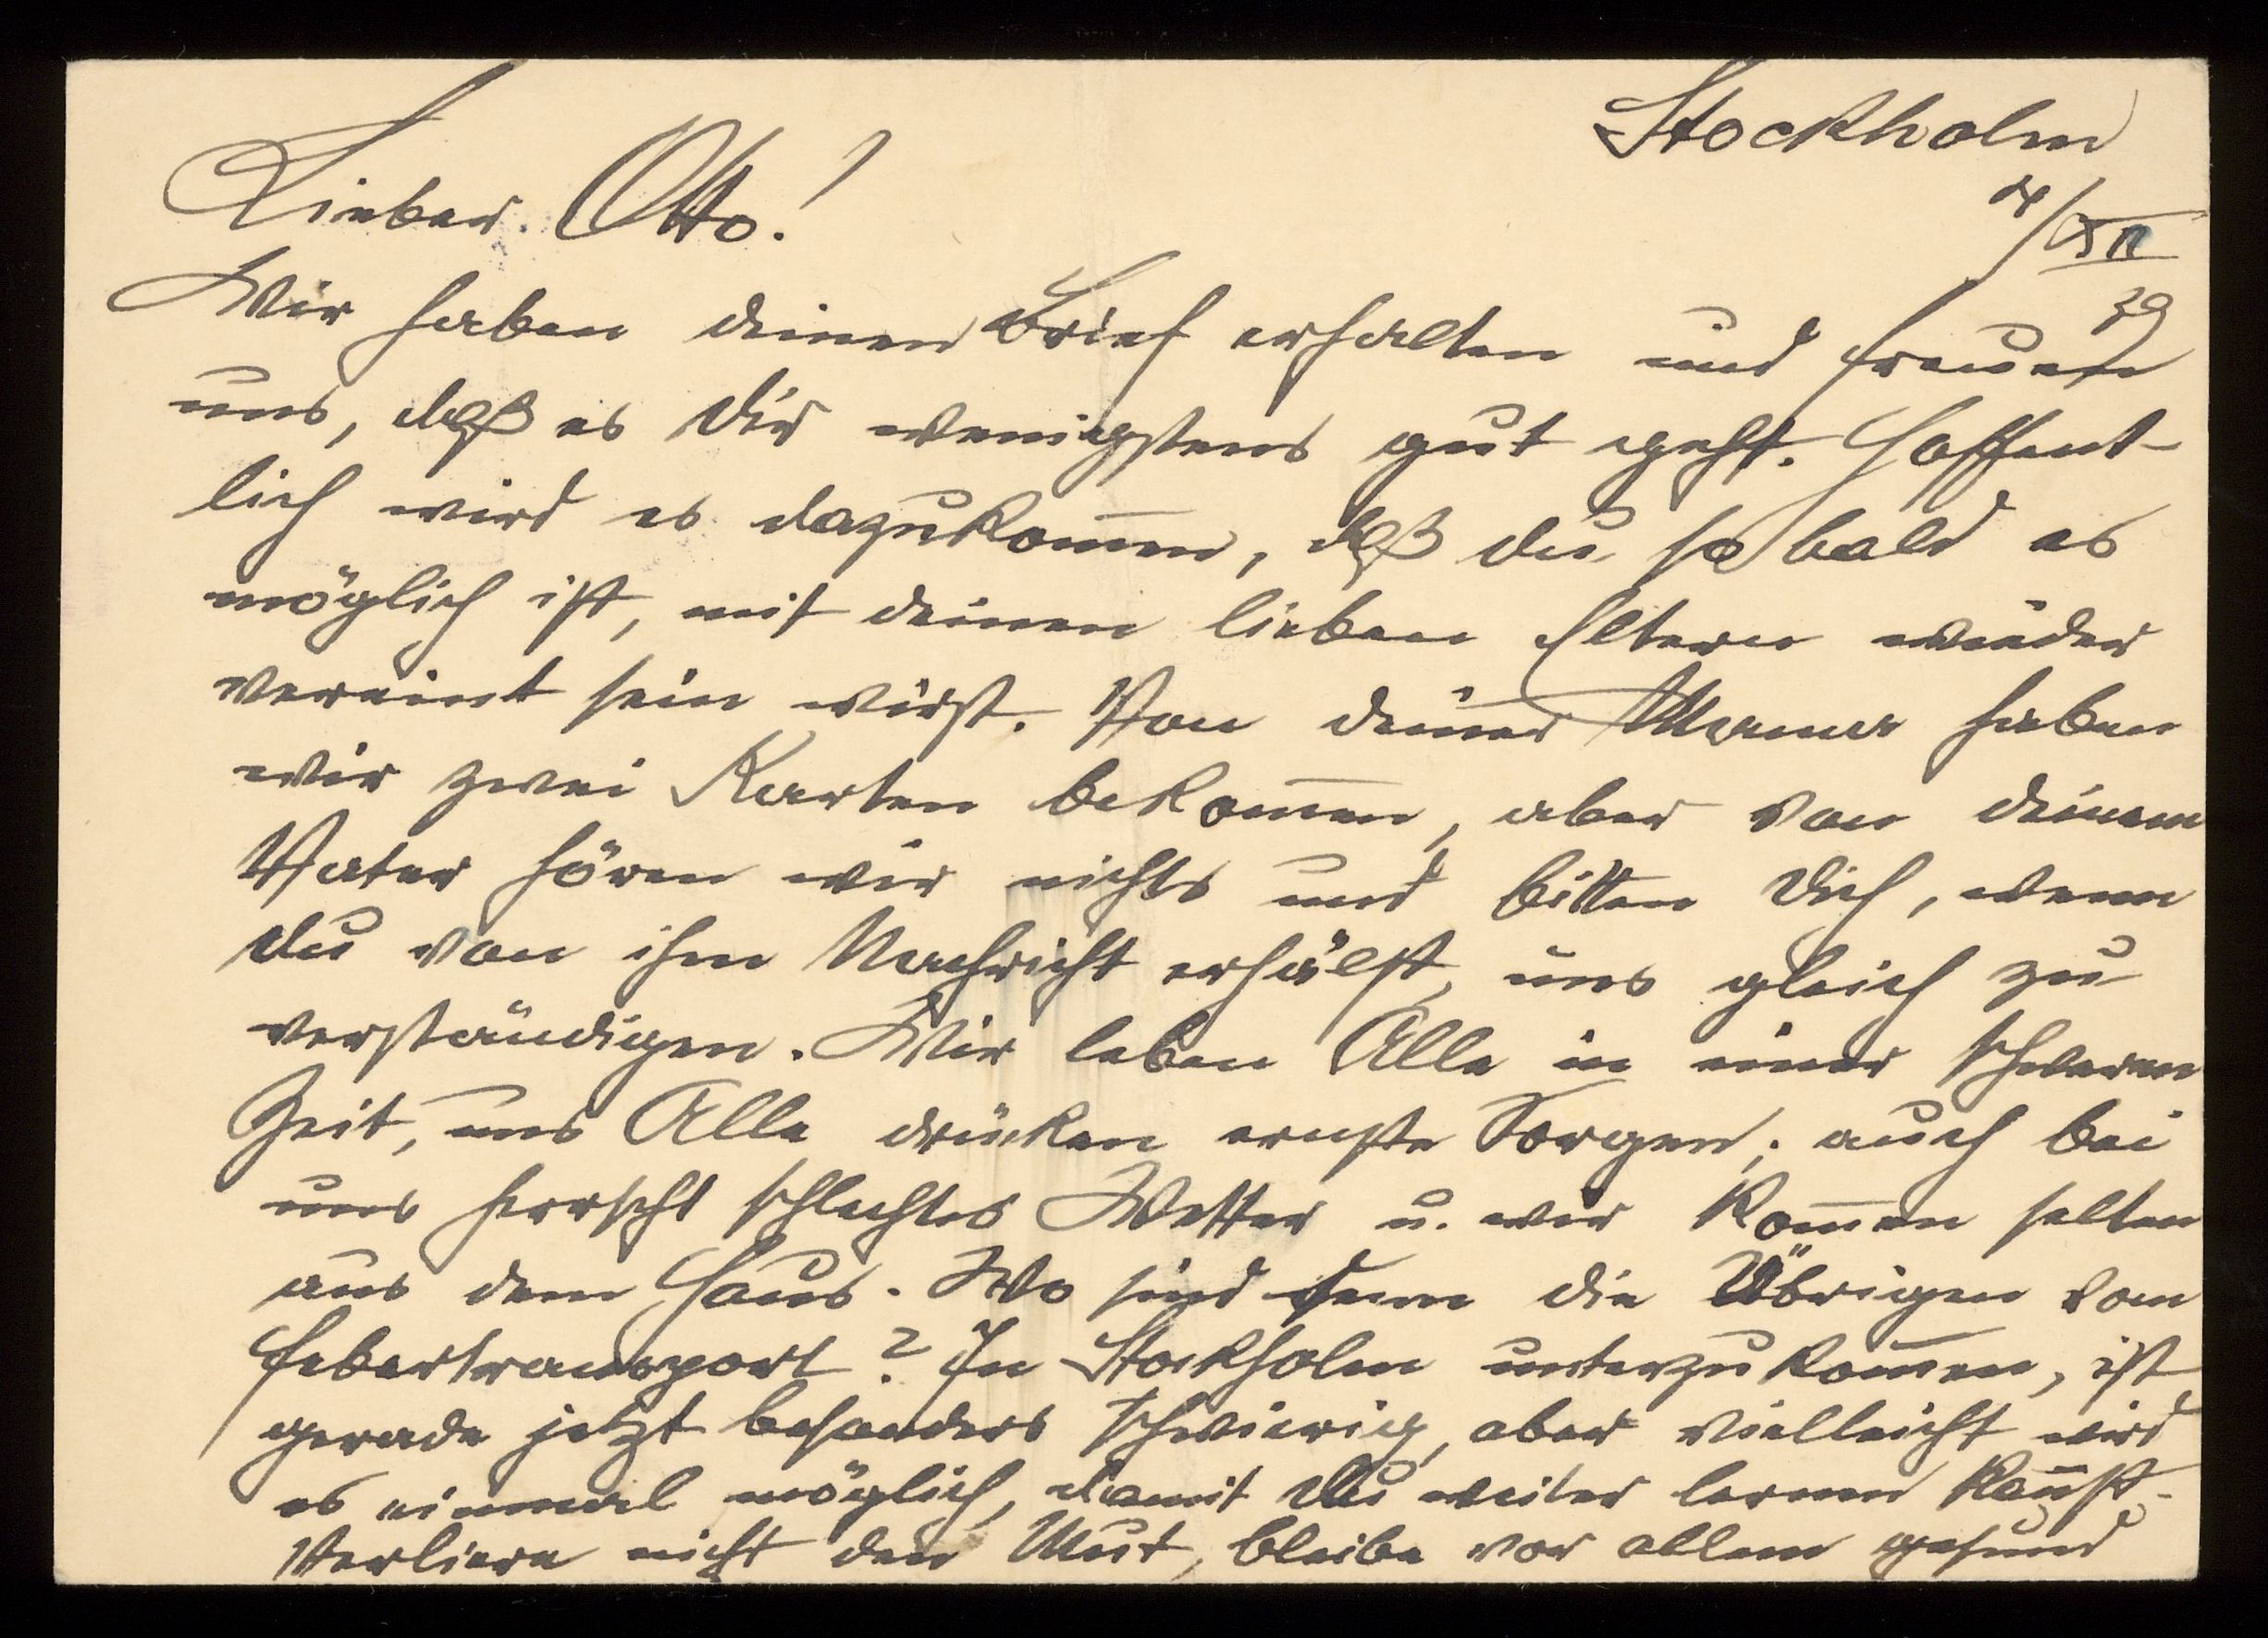 Stockholm
Lieber Otto!
/XII
39
Wir haben deinen Brief erhalten und freuen
uns, daß es Dir wenigstens gut geht. Hoffent-
lich wird es dazukom̅en, daß du so bald es
möglich ist, mit deinen lieben Eltern wieder
vereint sein wirst. Von deiner Mama haben
wir zwei Karten bekom̅en, aber von deinem
Vater hören wir nichts und bitten Dich, wenn
du von ihm Nachricht erhälst, uns gleich zu
verständigen. Wir leben Alle in einer schweren
Zeit, uns Alle drücken ernste Sorgen; auch bei
uns herrscht schlechtes Wetter u. wir kom̅en selten
aus dem Haus. Wo sind denn die Übrigen vom
? In Stockholm unterzukom̅en, ist
gerade jetzt besonders schwierig, aber vielleicht wird
es einmal möglich, damit Du weiter lernen kan̅st.
Verliere nicht den Mut, bleibe vor allem gesund